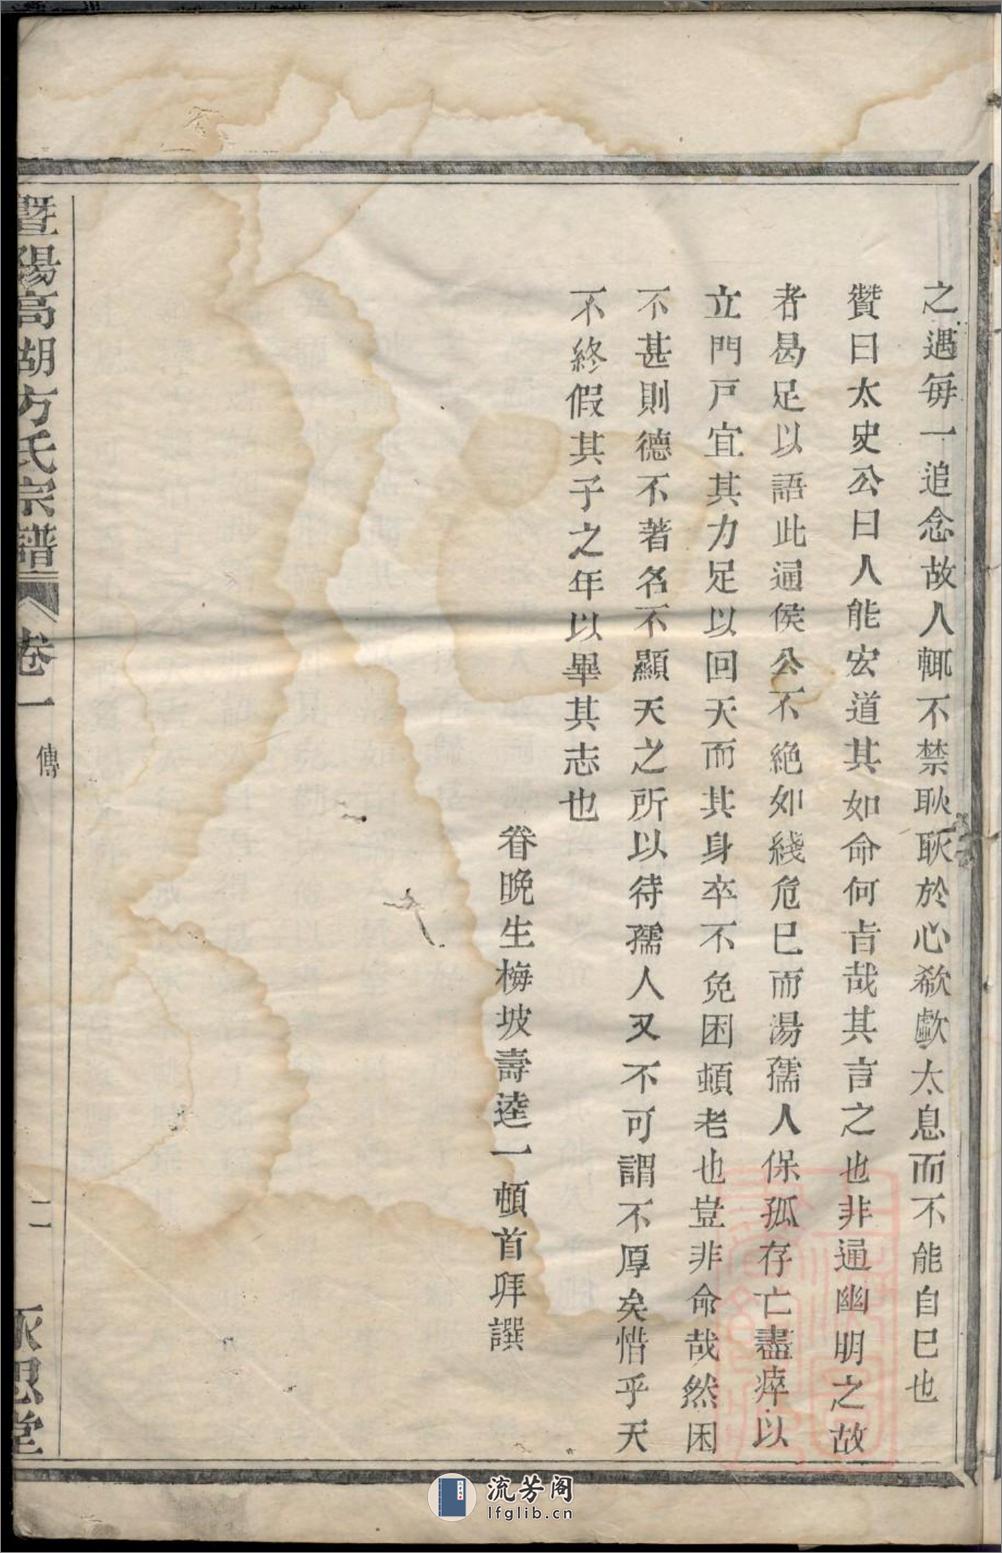 之遇每一追念故人輒不禁耿耿於心欷歔太息而不能自巳也
贊曰太史公曰人能宏道其如命何旨哉其言之也非通幽明之故
者曷足以語此通侯公不絕如綫危巳而湯孺人保孤存亡盡瘁以
立門戸宜其力足以回天而其身卒不免困頓老也豈非命哉然困
不甚則德不著名不顯天之所以待孺人又不可謂不厚矣惜乎天
不終假其子之年以畢其志也
眷晚生梅坡壽逵一頓首拜譔
暨陽高湖方氏宗譜
卷一
傳
二
永思堂
流芳阁
lfglib.cn